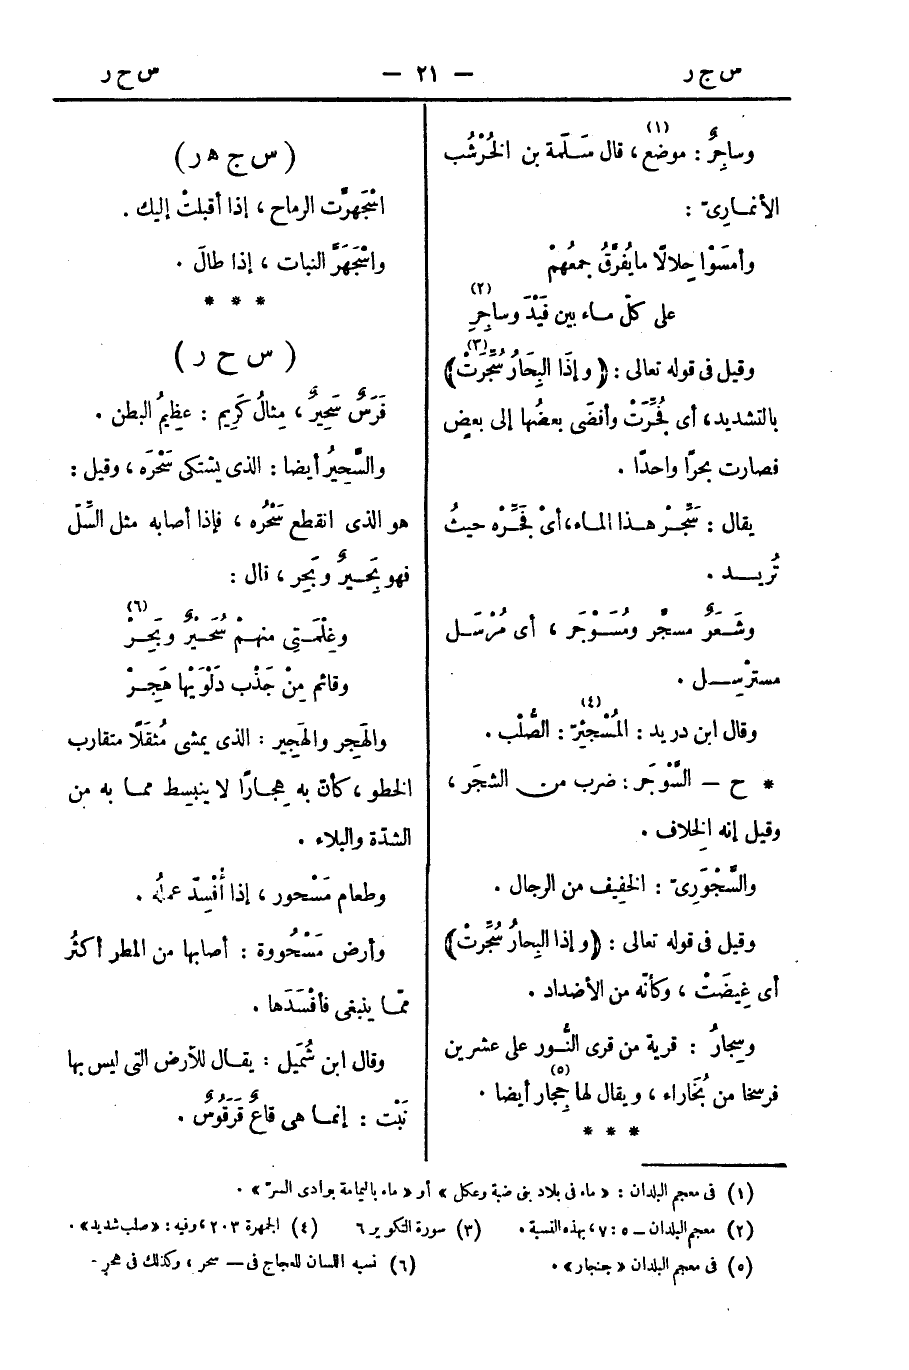 س ج ر
— ٢١ —
س ح ر
وساجِرٌ : موضع(١)، قال سَلَمة بن الخُرْشُب
الأنمارىّ :
وأمسَوْا حِلالًا مايُفَرَّقُ جمعُهمْ
على كلّ ماء بين فَيْدَ وساجِرِ(٢)
وقيل فى قوله تعالى : ﴿وإذَا البِحَارُ سُجِّرَتْ﴾(٣)
بالتشديد، أى فُجِّرَتْ وأفضَى بعضُها إلى بعض
فصارت بحرًا واحدًا .
يقال : سَجِّرْ هـذا الماء، أىْ فَجِّرْه حيثُ
تُريد .
وشَعَرٌ مسجَّر ومُسَوْجَر ، أى مُرْسَل
مسترْسِل .
وقال ابن دريد : المُسْجَئِرّ(٤) : الصُّلْب .
* ح — السَّوْجَر : ضرب من الشجَر ،
وقيل إنه الخِلاف .
والسَّجْوَرِىّ : الخفيف من الرجال .
وقيل فى قوله تعالى : ﴿وإذا البحارُ سُجِّرَتْ﴾
أى غِيضَتْ ، وكأنّه من الأضداد .
وسِجارُ : قرية من قرى النُّور على عشرين
فرسخا من بُخَاراء ، ويقال لها جِجار(٥) أيضا .
* * *
( س ج ه ر )
اسْجَهرَّت الرماح ، إذا أقبلتْ إليك .
واسْجَهَرَّ النبات ، إذا طالَ .
* * *
( س ح ر )
فَرَسٌ سَحِيرٌ ، مِثالُ كَرِيم : عظِيمُ البطن .
والسَّحِيرُ أيضا : الذى يشتكى سَحْرَه ، وقيل :
هو الذى انقطع سَحْرُه ، فإذا أصابه مثل السِّلّ
فهو بَحِيرٌ وبَحِر ، قال :
وغِلْمَتِى منهمْ سُحَيْرٌ وبَحِرْ(٦)
وقائم مِنْ جَذْب دَلْوَيْها هَجِرْ
والهَجِر والهَجِير : الذى يمشى مُثقَلًا متقارب
الخطو ، كأن به هِجارًا لا ينبسِط مما به من
الشدّة والبلاء .
وطعام مَسْحور ، إذا أُفْسِدَ عملُه .
وأرض مَسْحُووة : أصابها من المطر أكثُر
ممّا ينبغى فأفْسَدَها .
وقال ابن شُمَيل : يقال للأرض التى ليس بها
نَبْت : إنما هى قاعٌ قَرَقُوسٌ .
(١) فى معجم البلدان : « ماء فى بلاد بنى ضبة وعكل » أو « ماء باليمامة بوادى السرّ » .
(٢) معجم البلدان — ٥ : ٧، بهذه النسبة . (٣) سورة التكوير ٦ (٤) الجمهرة ٢٠٣ ، وفيه : « صلب شديد » .
(٥) فى معجم البلدان « جنجار » . (٦) نسبه اللسان للعجاج فى — سحر ، وكذلك فى هجر -